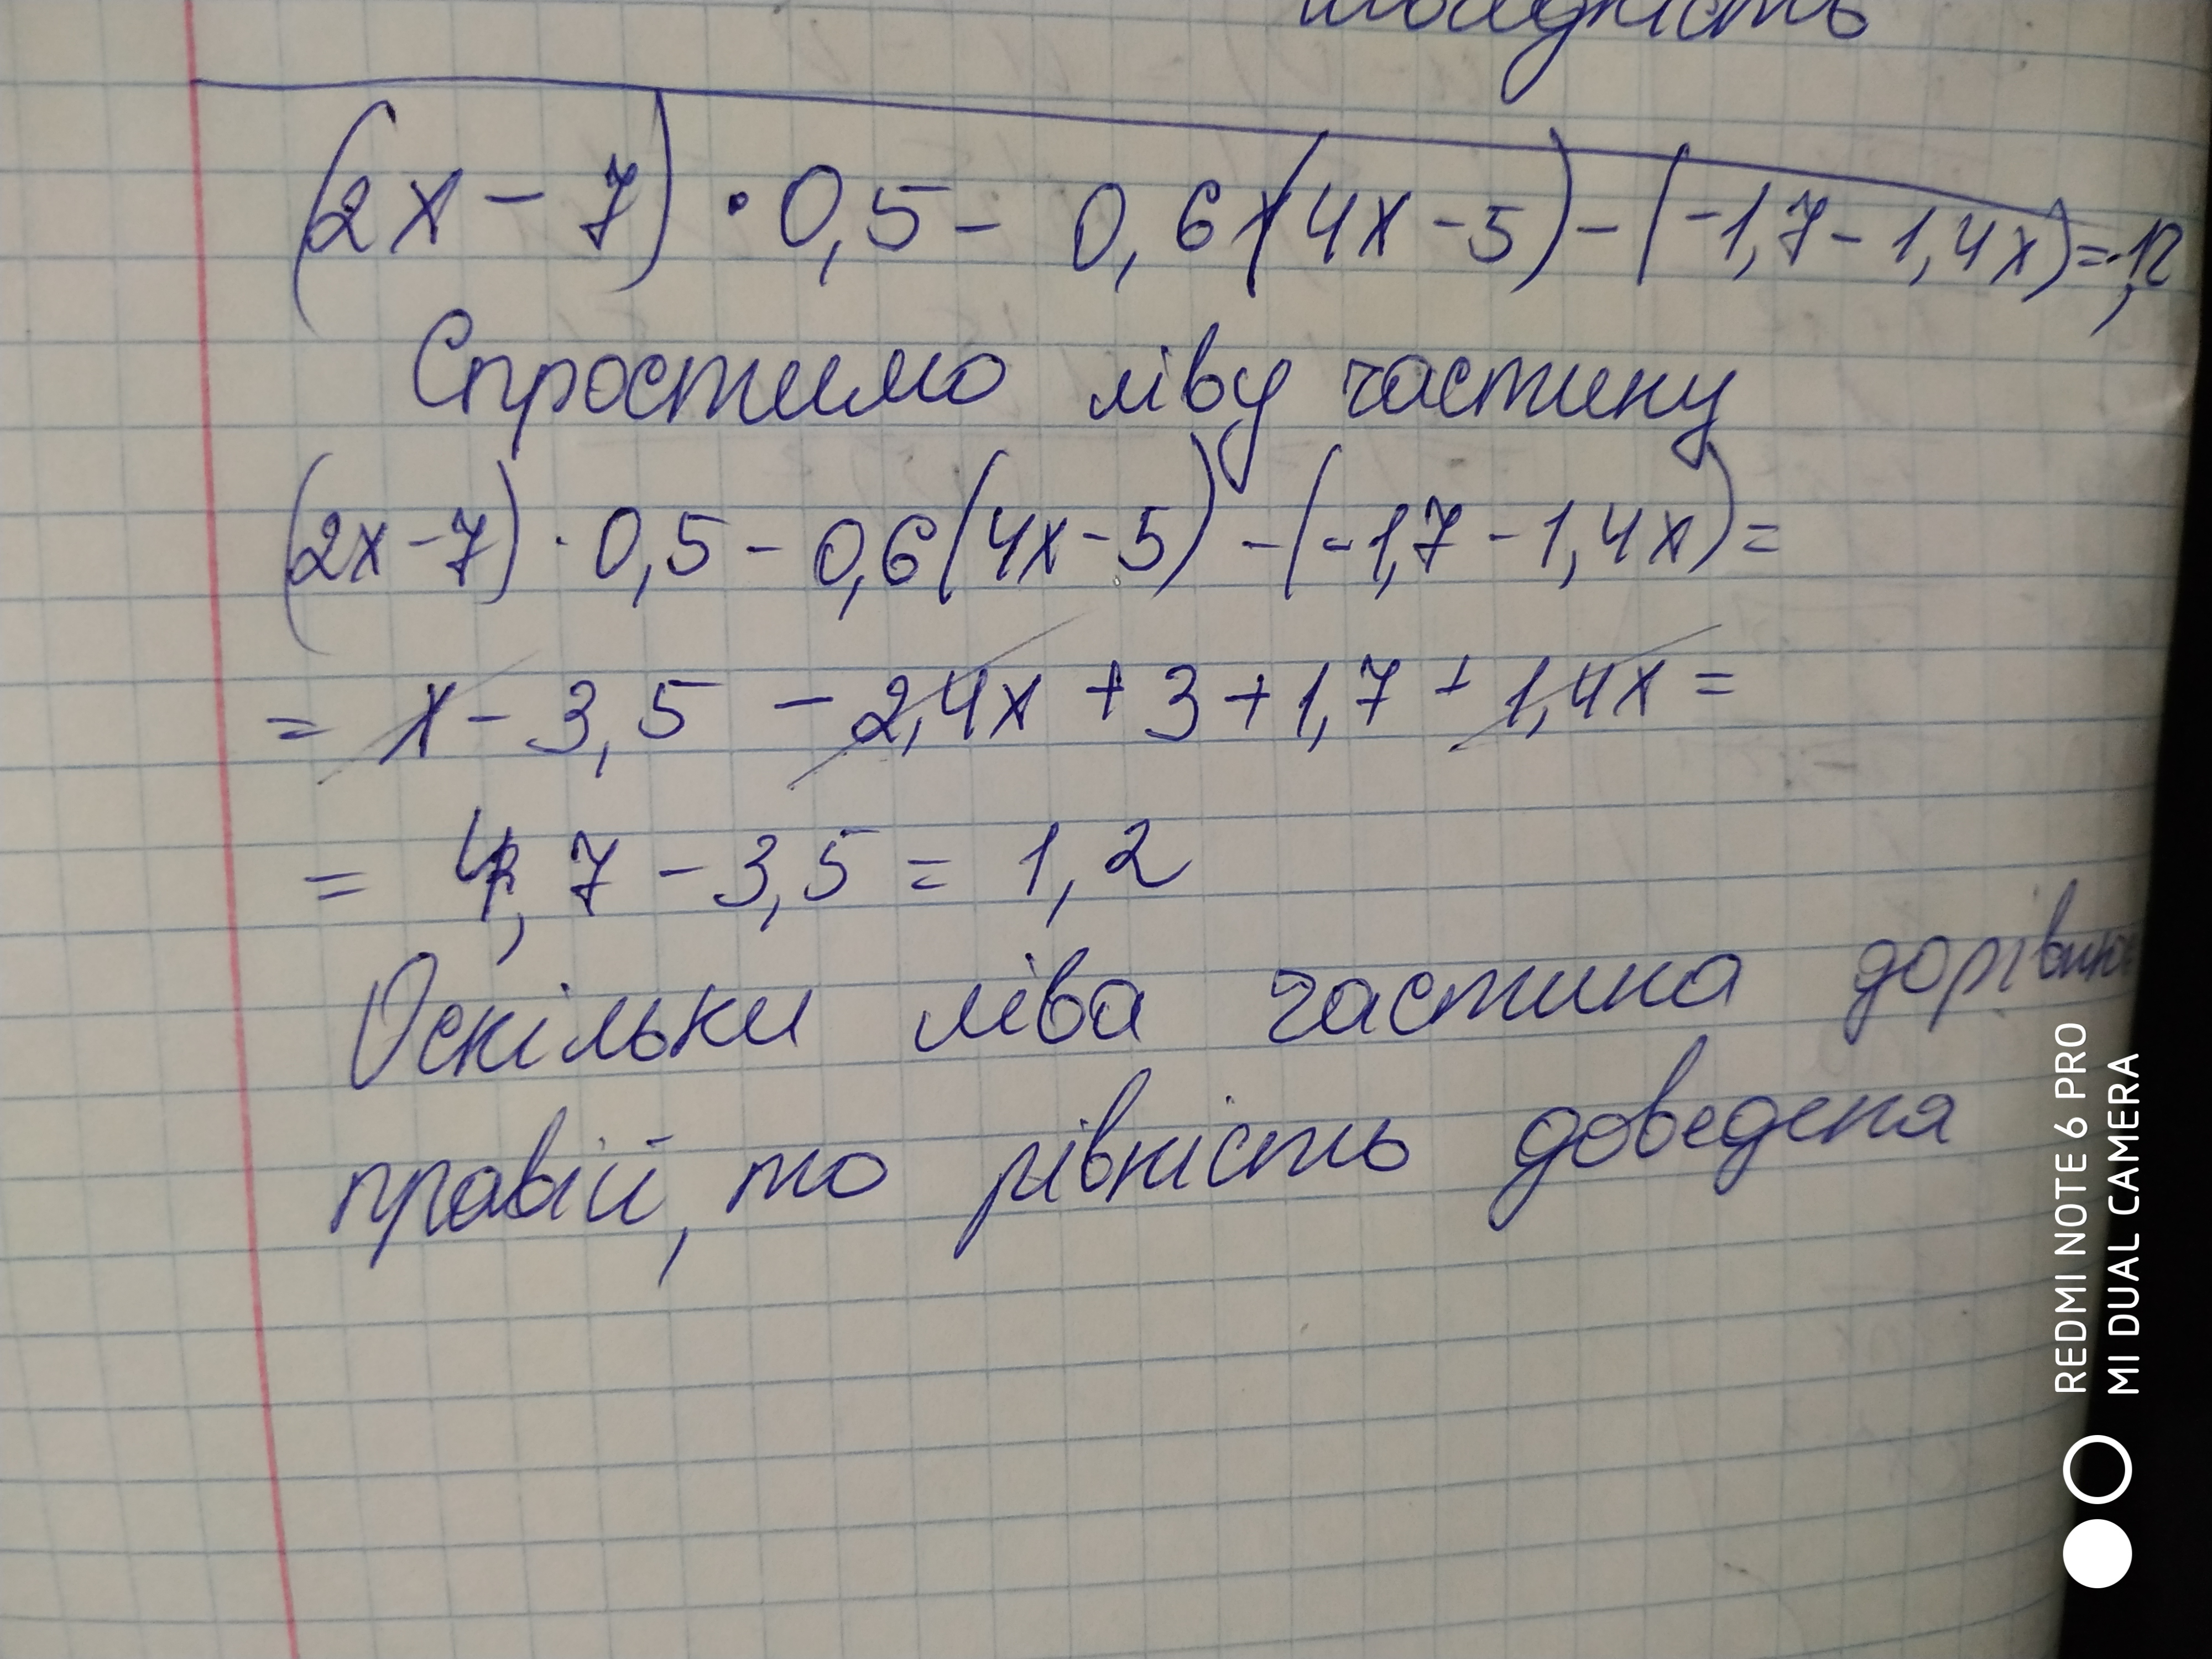 (2x - 7) · 0,5 - 0,6 (4x - 5) - (-1,7 - 1,4x) = 1,2
Спростимо ліву частину
(2x - 7) · 0,5 - 0,6 (4x - 5) - (-1,7 - 1,4x) =
= x - 3,5 - 2,4x + 3 + 1,7 + 1,4x =
= 4,7 - 3,5 = 1,2
Оскільки ліва частина дорівнює
правій, то рівність доведена
REDMI NOTE 6 PRO
MI DUAL CAMERA